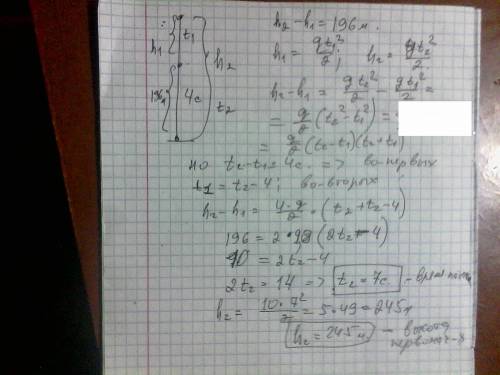 h₁ t₁ h₂
196 4с t₂
h₂ - h₁ = 196м.
h₁ = gt₁²/2; h₂ = gt₂²/2
h₂ - h₁ = gt₂²/2 - gt₁²/2 =
= g/2 (t₂² - t₁²) =
= g/2 (t₂ - t₁)(t₂ + t₁)
но t₂ - t₁ = 4с. => во-первых
t₁ = t₂ - 4; во-вторых
h₂ - h₁ = 4·g/2 · (t₂ + t₂ - 4)
196 = 2·9,8 (2t₂ - 4)
10 = 2t₂ - 4
2t₂ = 14 => t₂ = 7с -
h₂ = 10·7²/2 = 5·49 = 245м
h₂ = 245м - высота